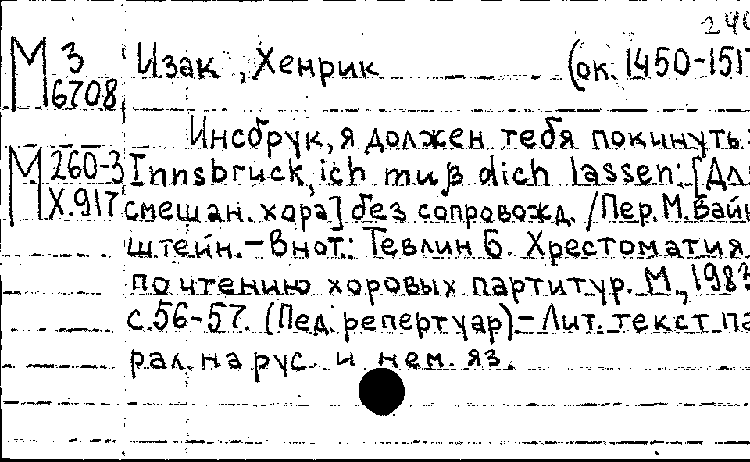 240
М 3 Изак, Хенрик (ок. 1450-151
6708
Инсбрук, я должен тебя покинуть =
М 260-3 Innsbruck, ich muß dich lassen: [Дл
X.917 смешан. хора] без сопровожд. / Пер. М. Вай
штейн. - В нот.: Тевлин Б. Хрестоматия
по чтению хоровых партитур. М., 1983
с. 56-57. (Пед. репертуар) - Лит. текст па
рал. на рус. и нем. яз.